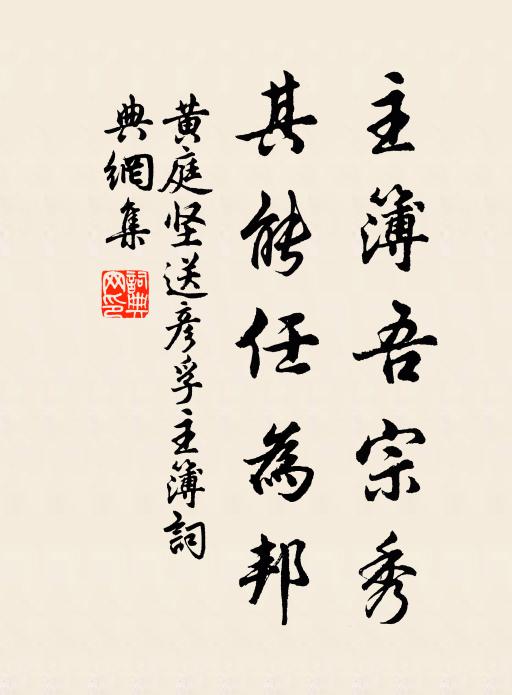 主簿吾宗秀
其能任為邦
黄庭坚送彦孚主簿詞
典網集
詞典
网印